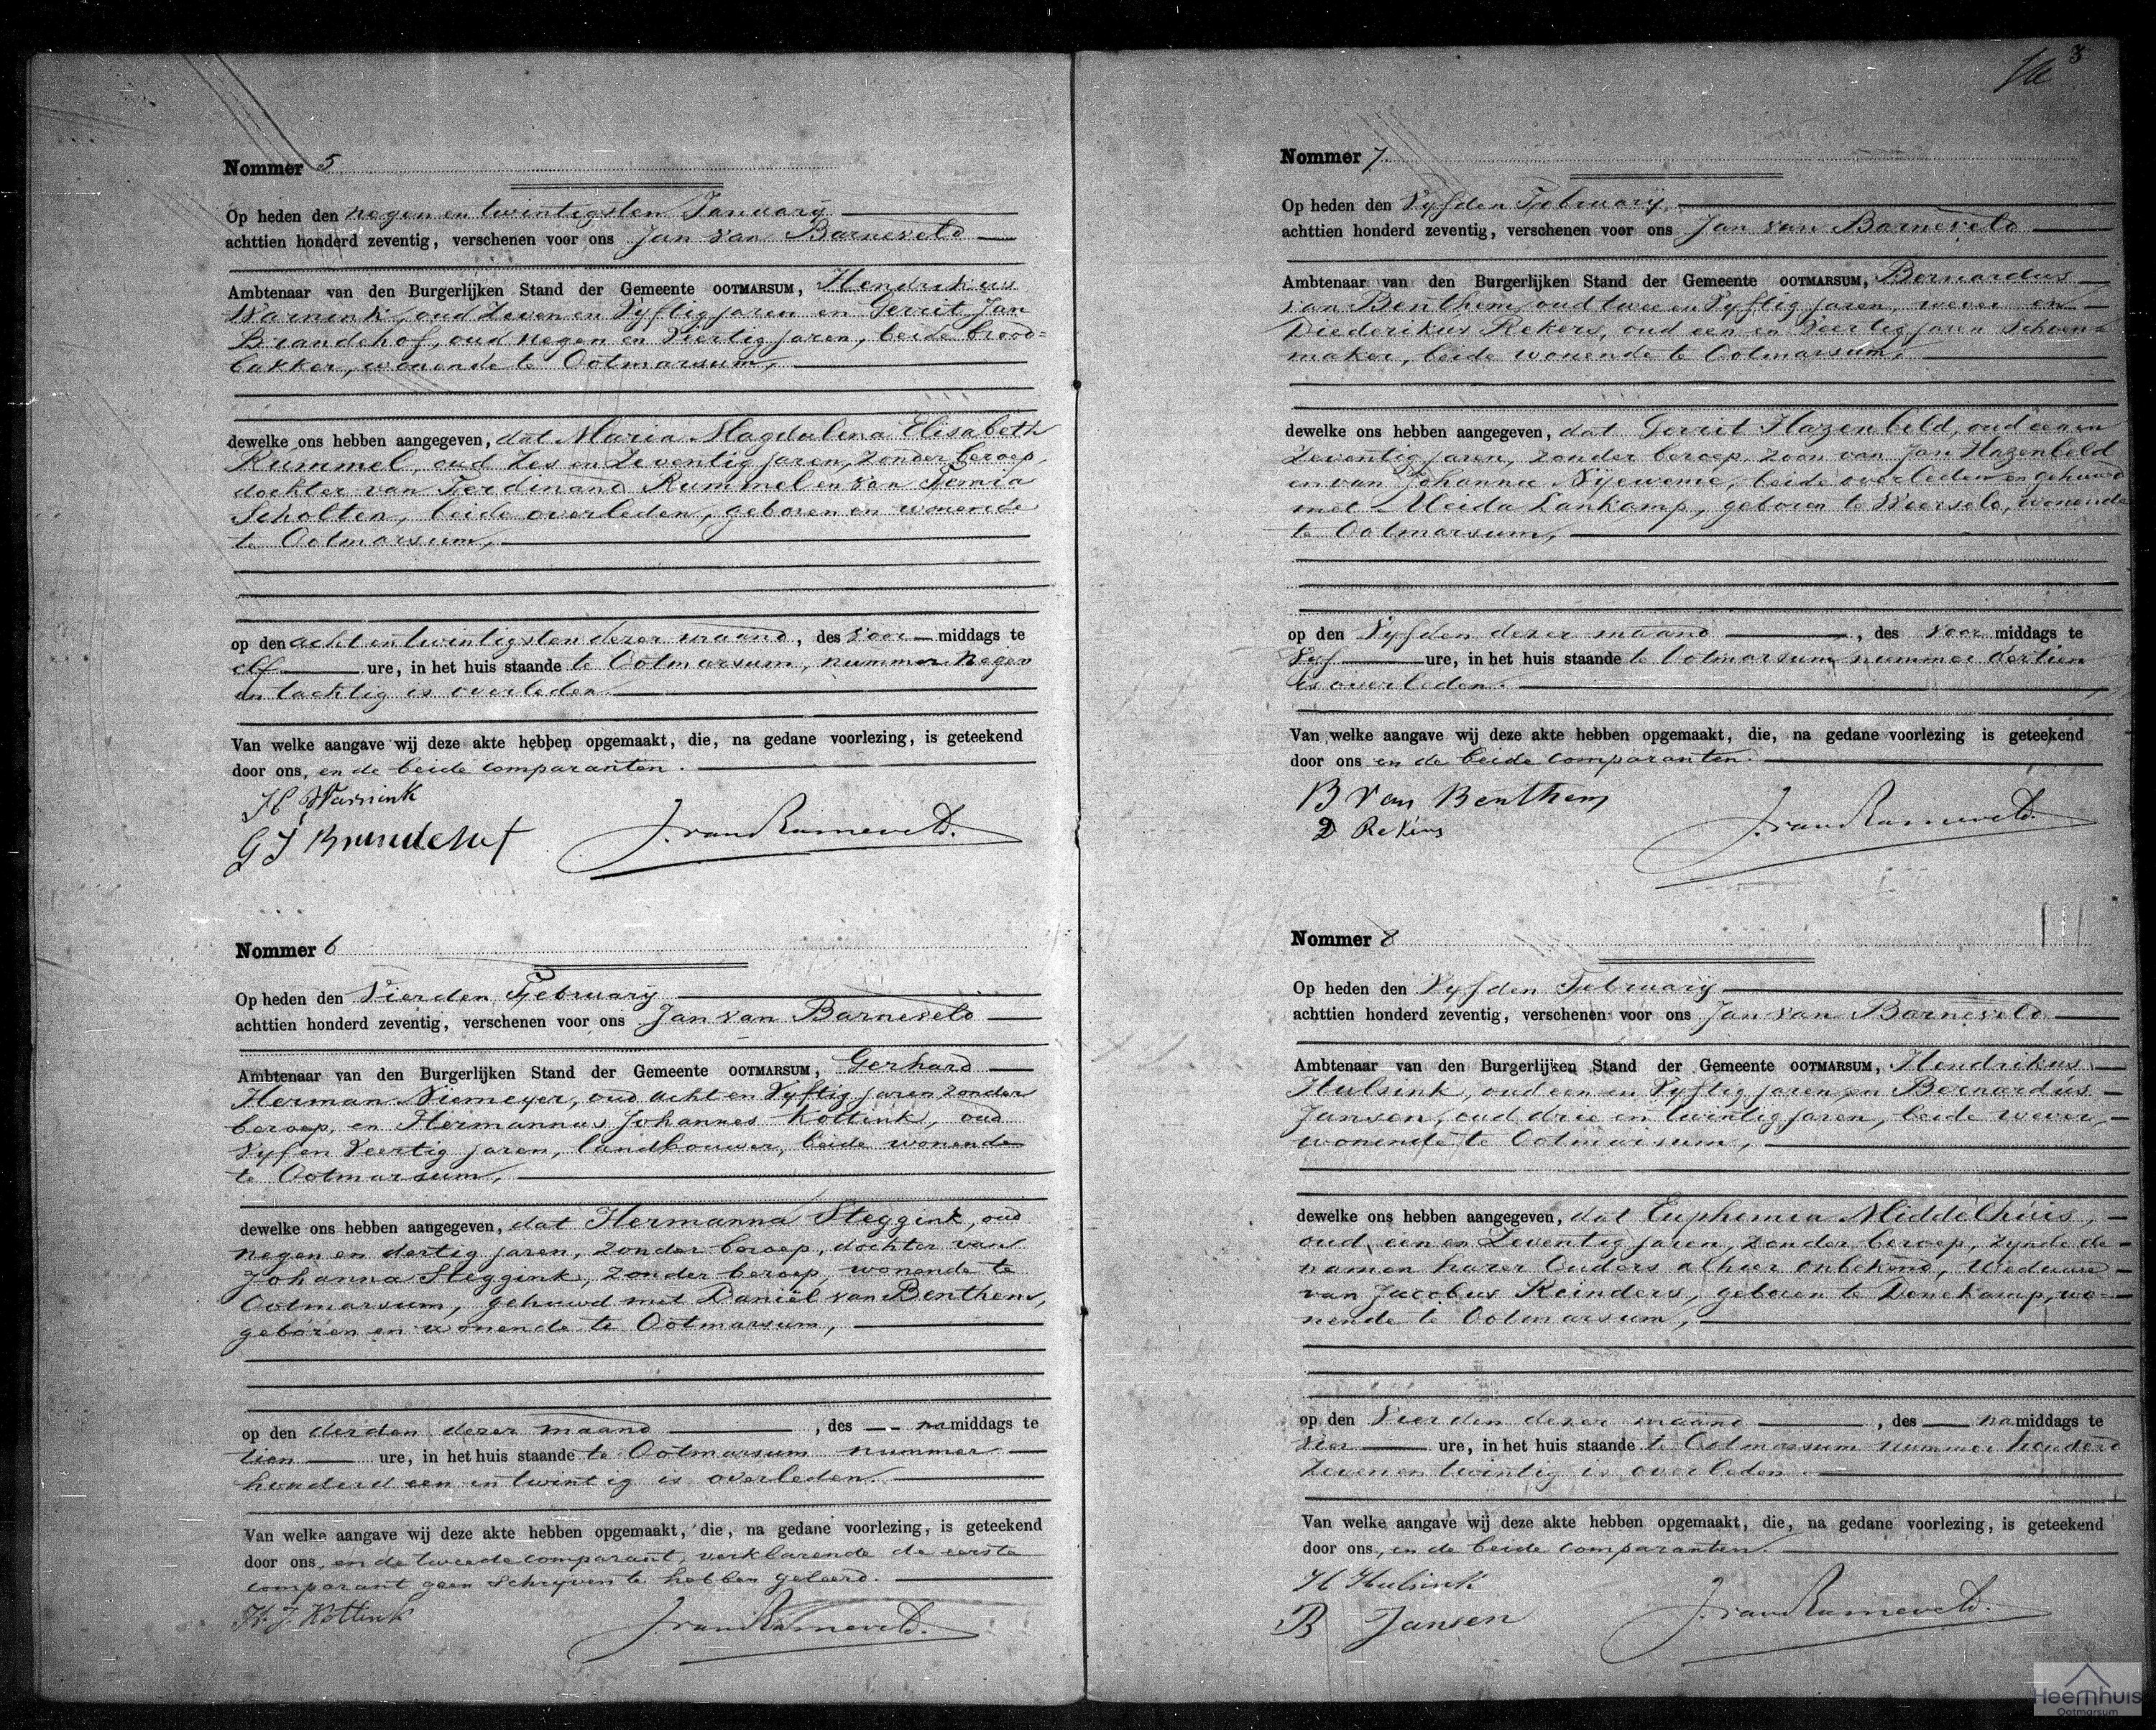 Nommer 5
Op heden den negen en twintigsten January
achttien honderd zeventig, verschenen voor ons Jan van Barneveld
Ambtenaar van den Burgerlijken Stand der Gemeente OOTMARSUM, Hendrikus
Warnink, oud Zeven en Vyftig jaren en Gerrit Jan
Brandehof, oud negen en Viertig jaren, beide brood=
bakker, wonende te Ootmarsum,
dewelke ons hebben aangegeven, dat Maria Magdalena Elisabeth
Rümmel, oud Zes en Zeventig jaren, zonder beroep,
dochter van Ferdinand Rummel en van Femia
Scholten, beide overleden, geboren en wonende
te Ootmarsum,
op den acht en twintigsten dezer maand, des voor middags te
elf ure, in het huis staande te Ootmarsum, nummer negen
en tachtig is overleden.
Van welke aangave wij deze akte hebben opgemaakt, die, na gedane voorlezing, is geteekend
door ons, en de beide comparanten.
H Warnink
G J Brandehof
J. van Barneveld.
Nommer 6
Op heden den Vierden February
achttien honderd zeventig, verschenen voor ons Jan van Barneveld
Ambtenaar van den Burgerlijken Stand der Gemeente OOTMARSUM, Gerhard
Herman Niemeyer, oud acht en Vyftig jaren zonder
beroep, en Hermannus Johannes Kottink, oud
Vyf en Veertig jaren, landbouwer, beide wonende
te Ootmarsum,
dewelke ons hebben aangegeven, dat Hermanna Steggink, oud
negen en dertig jaren, zonder beroep, dochter van
Johanna Steggink, zonder beroep, wonende te
Ootmarsum, gehuwd met Daniël van Benthem,
geboren en wonende te Ootmarsum,
op den derden dezer maand, des na middags te
tien ure, in het huis staande te Ootmarsum nummer
honderd een en twintig is overleden.
Van welke aangave wij deze akte hebben opgemaakt, die, na gedane voorlezing, is geteekend
door ons, en de tweede comparant, verklarende de eerste
comparant geen schryven te hebben geleerd.
H. J. Kottink
J. van Barneveld.
3
Nommer 7
Op heden den Vyfden February
achttien honderd zeventig, verschenen voor ons Jan van Barneveld
Ambtenaar van den Burgerlijken Stand der Gemeente OOTMARSUM, Bernardus
van Benthem, oud twee en Vyftig jaren, wever en
Diederikus Rekers, oud een en Veertig jaren Schoen=
maker, beide wonende te Ootmarsum,
dewelke ons hebben aangegeven, dat Gerrit Hazenbeld, oud een en
Zeventig jaren, zonder beroep, zoon van Jan Hazenbeld
en van Johanna Nijewenie, beide overleden en gehuwd
met Aleida Lankamp, geboren te Weerselo, wonende
te Ootmarsum,
op den Vyfden dezer maand, des voor middags te
Vyf ure, in het huis staande te Ootmarsum nummer dertien
is overleden.
Van welke aangave wij deze akte hebben opgemaakt, die, na gedane voorlezing, is geteekend
door ons en de beide comparanten.
B van Benthem
D Rekers
J. van Barneveld.
Nommer 8
Op heden den Vyfden February
achttien honderd zeventig, verschenen voor ons Jan van Barneveld
Ambtenaar van den Burgerlijken Stand der Gemeente OOTMARSUM, Hendrikus
Hulsink, oud een en Vyftig jaren en Bernardus
Jansen, oud drie en twintig jaren, beide wever,
wonende te Ootmarsum,
dewelke ons hebben aangegeven, dat Euphemia Middelhuis,
oud een en Zeventig jaren, zonder beroep, zynde de
namen harer Ouders alhier onbekend, Weduwe
van Jacobus Reinders, geboren te Denekamp, wo=
nende te Ootmarsum,
op den Vierden dezer maand, des na middags te
vier ure, in het huis staande te Ootmarsum nummer honderd
Zeven en twintig is overleden.
Van welke aangave wij deze akte hebben opgemaakt, die, na gedane voorlezing, is geteekend
door ons, en de beide comparanten.
H Hulsink
B Jansen
J. van Barneveld.
Heemhuis
Ootmarsum